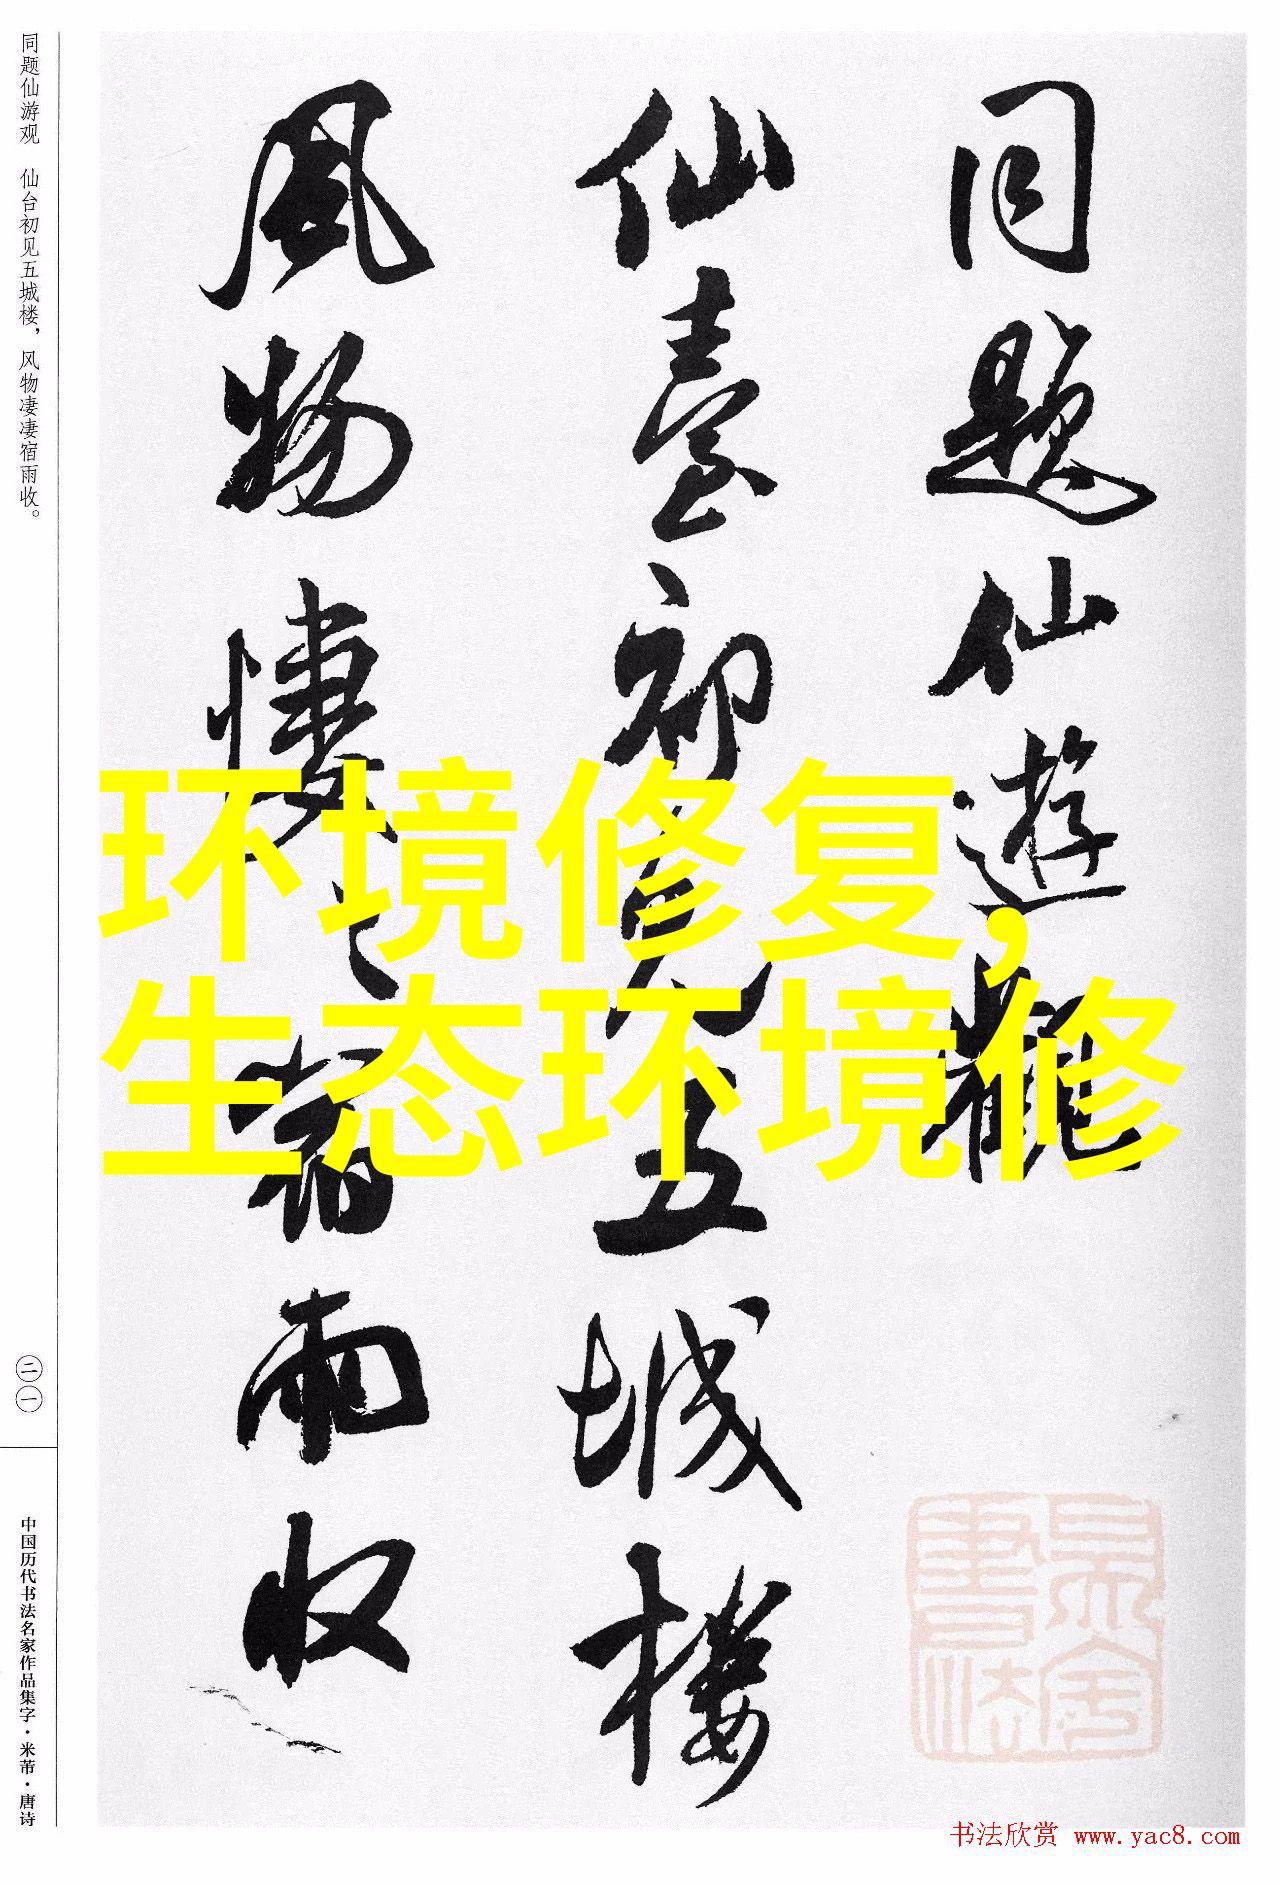 同题仙游观 仙台初见五城楼，风物凄凄宿雨收。
同题仙遊觀
仙臺初见五城楼
风物悽々宿雨收
环境修复，
生态环境修
二一
中国历代书法名家作品集字·米芾·唐诗
书法欣赏 www.yac8.com